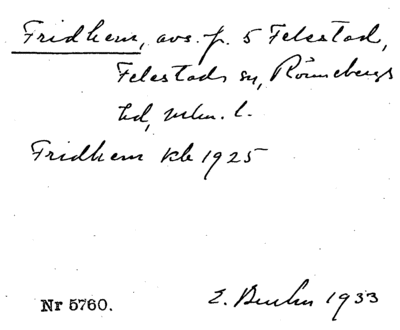 Fridhem, avs. fr. 5 Felestad,
Felestads sn, Rönnebergs
hd, Mlm. l.
Fridhem kb 1925
Nr 5760. E. 1933